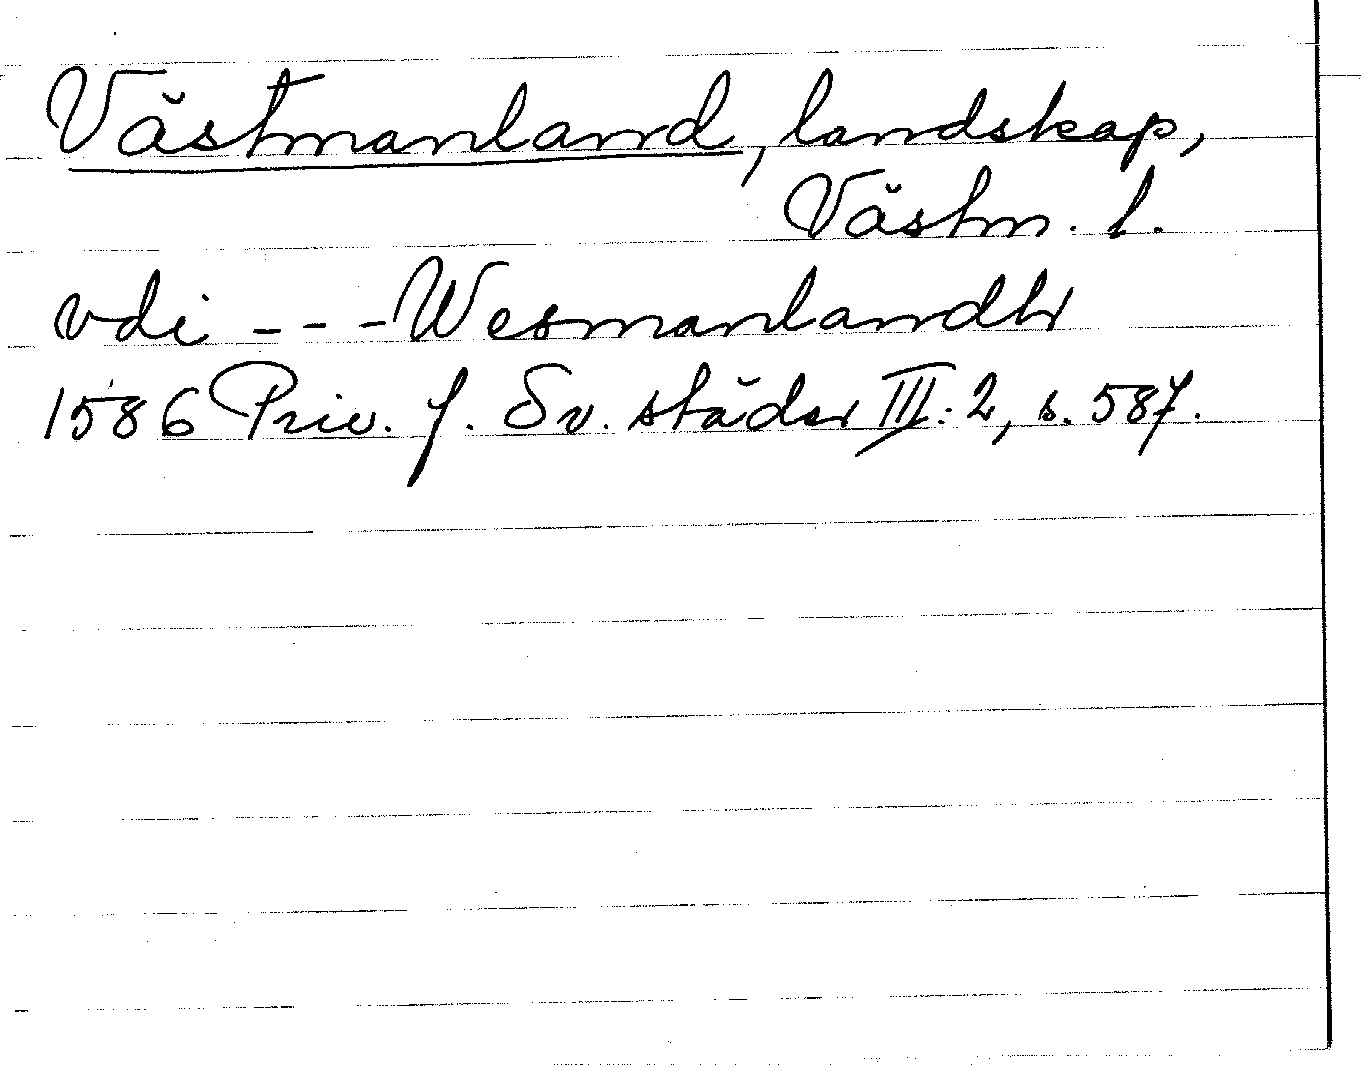 Västmanland, landskap,
Västm. l.
vdi - - - Wesmanlandh
1586 Priv. f. Sv. städer III: 2, s. 587.